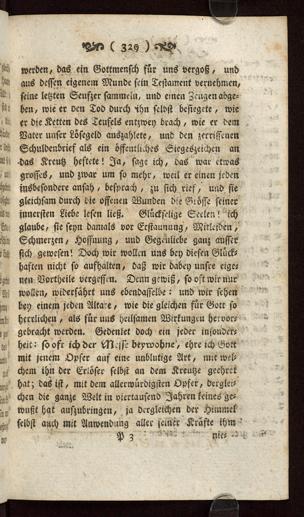 ( 329 )
werden, das ein Gottmensch für uns vergoß, und
aus dessen eigenem Munde sein Testament vernehmen,
seine letzten Seufzer sammeln, und einen Zeugen abge-
ben, wie er den Tod durch ihn selbst besiegete, wie
er die Ketten des Teufels entzwey brach, wie er dem
Vater unser Lösegeld auszahlete, und den zerrissenen
Schuldenbrief als ein öffentliches Siegeszeichen an
das Kreutz heftete! Ja, sage ich, das war etwas
grosses, und zwar um so mehr, weil er einen jeden
insbesondere ansah, besprach, zu sich rief, und sie
gleichsam durch die offenen Wunden die Grösse seiner
innersten Liebe lesen ließ. Glückselige Seelen! ich
glaube, sie seyn damals vor Erstaunung, Mitleiden,
Schmerzen, Hoffnung, und Gegenliebe ganz ausser
sich gewesen! Doch wir wollen uns bey diesen Glück-
haften nicht so aufhalten, daß wir dabey unsre eige-
nen Vortheile vergessen. Denn gewiß, so oft wir nur
wollen, widerfährt uns ebendasselbe: und wir sehen
bey einem jeden Altare, wie die gleichen für Gott so
herrlichen, als für uns heilsamen Wirkungen hervor-
gebracht werden. Gedenket doch ein jeder insonder-
heit: so oft ich der Messe beywohne, ehre ich Gott
mit jenem Opfer auf eine unblutige Art, mit wel-
chem ihn der Erlöser selbst an dem Kreutze geehret
hat; das ist, mit dem allerwürdigsten Opfer, derglei-
chen die ganze Welt in viertausend Jahren keines ge-
wußt hat aufzubringen, ja dergleichen der Himmel
selbst auch mit Anwendung aller seiner Kräfte ihm
P 3 nie-